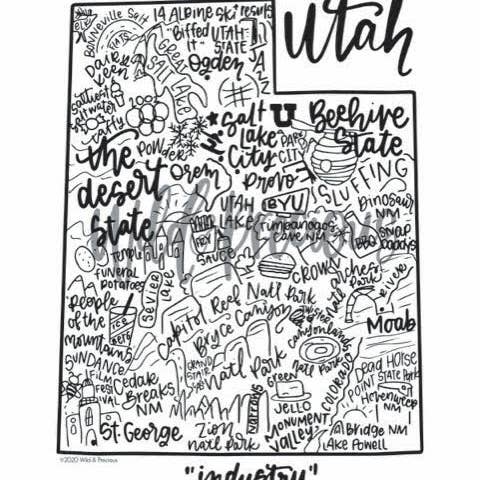 Utah
14 Alpine Ski resorts
Bonneville Salt
Flats
"Biffed
it"
UTAH
STATE
Ogden
Great
Salt
Lake
saltiest
salt water
taffy
Powder
Salt
Lake
City
U
PARK
CITY
Beehive
State
the
desert
state
Orem
Provo
SLUFFING
UTAH
LAKE
BYU
Timpanogos
Cave NM
Dinosaur
NM
BBQ
FRY
SAUCE
Temple
funeral
potatoes
SEVIER
Lake
CROWN
Wild & Precious
people
of the
mountains
ICE
Capitol Reef Nat'l Park
Bryce Canyon
Nat'l Park
canyonlands
Nat'l Park
Moab
SUNDANCE
FILM
FESTIVAL
Cedar
Breaks
NM
GRAND
STAIR
NARROWS
Green
JELLO
COLORADO
Dead Horse
POINT STATE PARK
Hovenweep
NM
St. George
Zion
Nat'l Park
MONUMENT
VALLEY
Bridge NM
LAKE Powell
©2020 Wild & Precious
"industry"